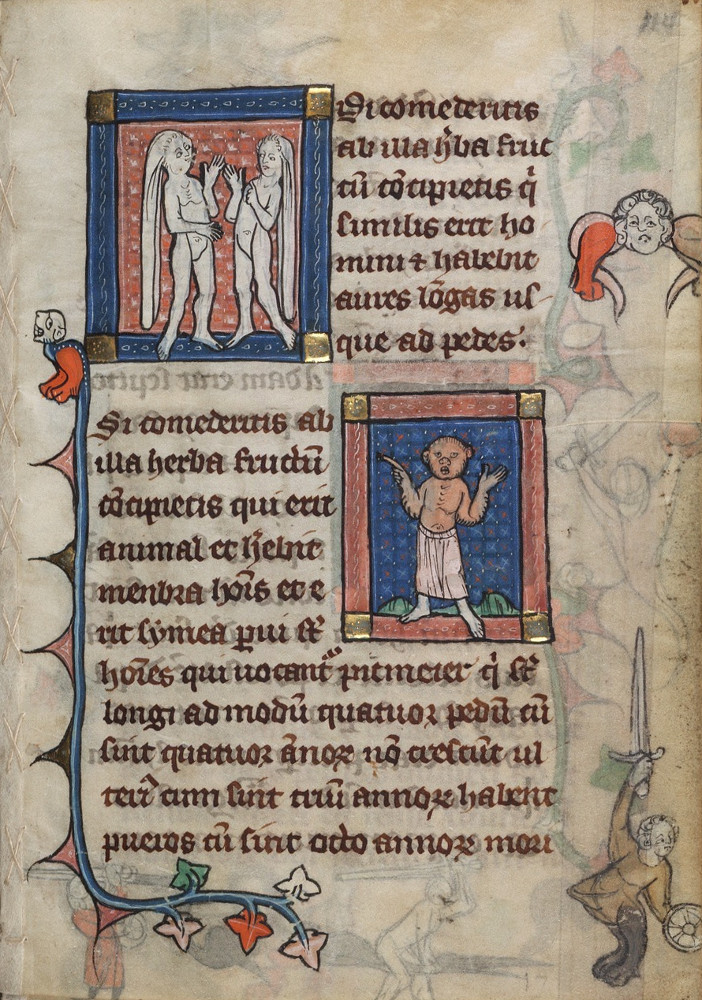 Si comederitis
ab illa h̓ba fruc
tū cōcipietis q̄
similis erit ho
mini ⁊ habebit
aures lōgas us
que ad pedes·
Si comederitis ab
illa herba fructū
cōcipietis qui erit
animal et h̓ebit
menbra hoīs et e
rit symea parui st̄
hoīes qui uocant᷑ picmeier q̄ st̄
longi ad modū quatuor pedū cū
sint quatuor ānoꝝ nō crescūt ul
teri᷑ cum sint triū annoꝝ habent
pueros cū sint octo annoꝝ mori